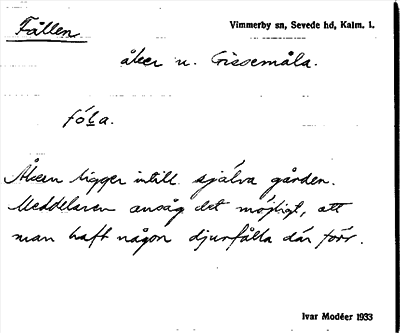 Fållen
Vimmerby sn, Sevede hd, Kalm. l.
åker u. Gissemåla.
fóla.
Åkern ligger intill själva gården.
Meddelaren ansåg det möjligt, att
man haft någon djurfålla där förr.
Ivar Modéer 1933